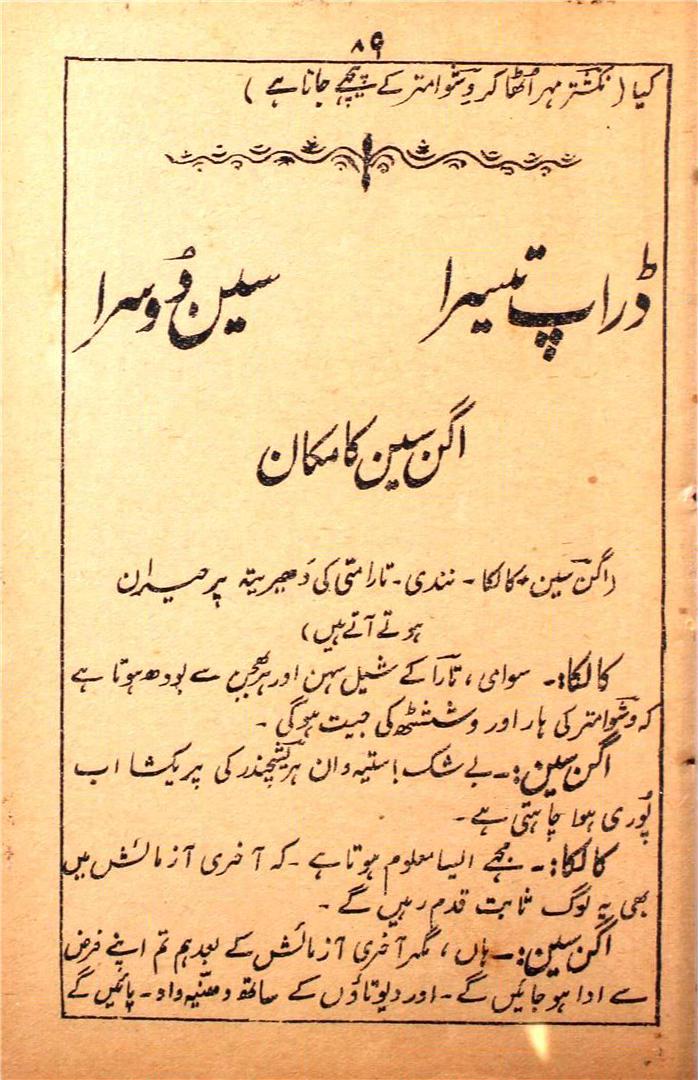 ۸۹
کیا (نکشتر مہر اُٹھا کر وشوامتر کے پیچھے جاتا ہے)
ڈراپ تیسرا سین دُوسرا
اگن سین کا مکان
(اگن سین، کالکا۔ نندی۔ تارا متی کی دھیریتہ پر حیران
ہوتے آتے ہیں)
کالکا:۔ سوامی، تارا کے شیل سہن اور ہر بچن سے بودھ ہوتا ہے
کہ وشوامتر کی ہار اور وششٹھ کی جیت ہوگی۔
اگن سین:۔ بے شک! ستیہ وان ہریشچندر کی پریکشا اب
پُوری ہوا چاہتی ہے۔
کالکا:۔ مجھے ایسا معلوم ہوتا ہے۔ کہ آخری آزمائش میں
بھی یہ لوگ ثابت قدم رہیں گے۔
اگن سین:۔ ہاں، مگر آخری آزمائش کے بعد ہم تم اپنے فرض
سے ادا ہو جائیں گے۔ اور دیوتاؤں کے ساتھ دھنیہ واد۔ پائیں گے